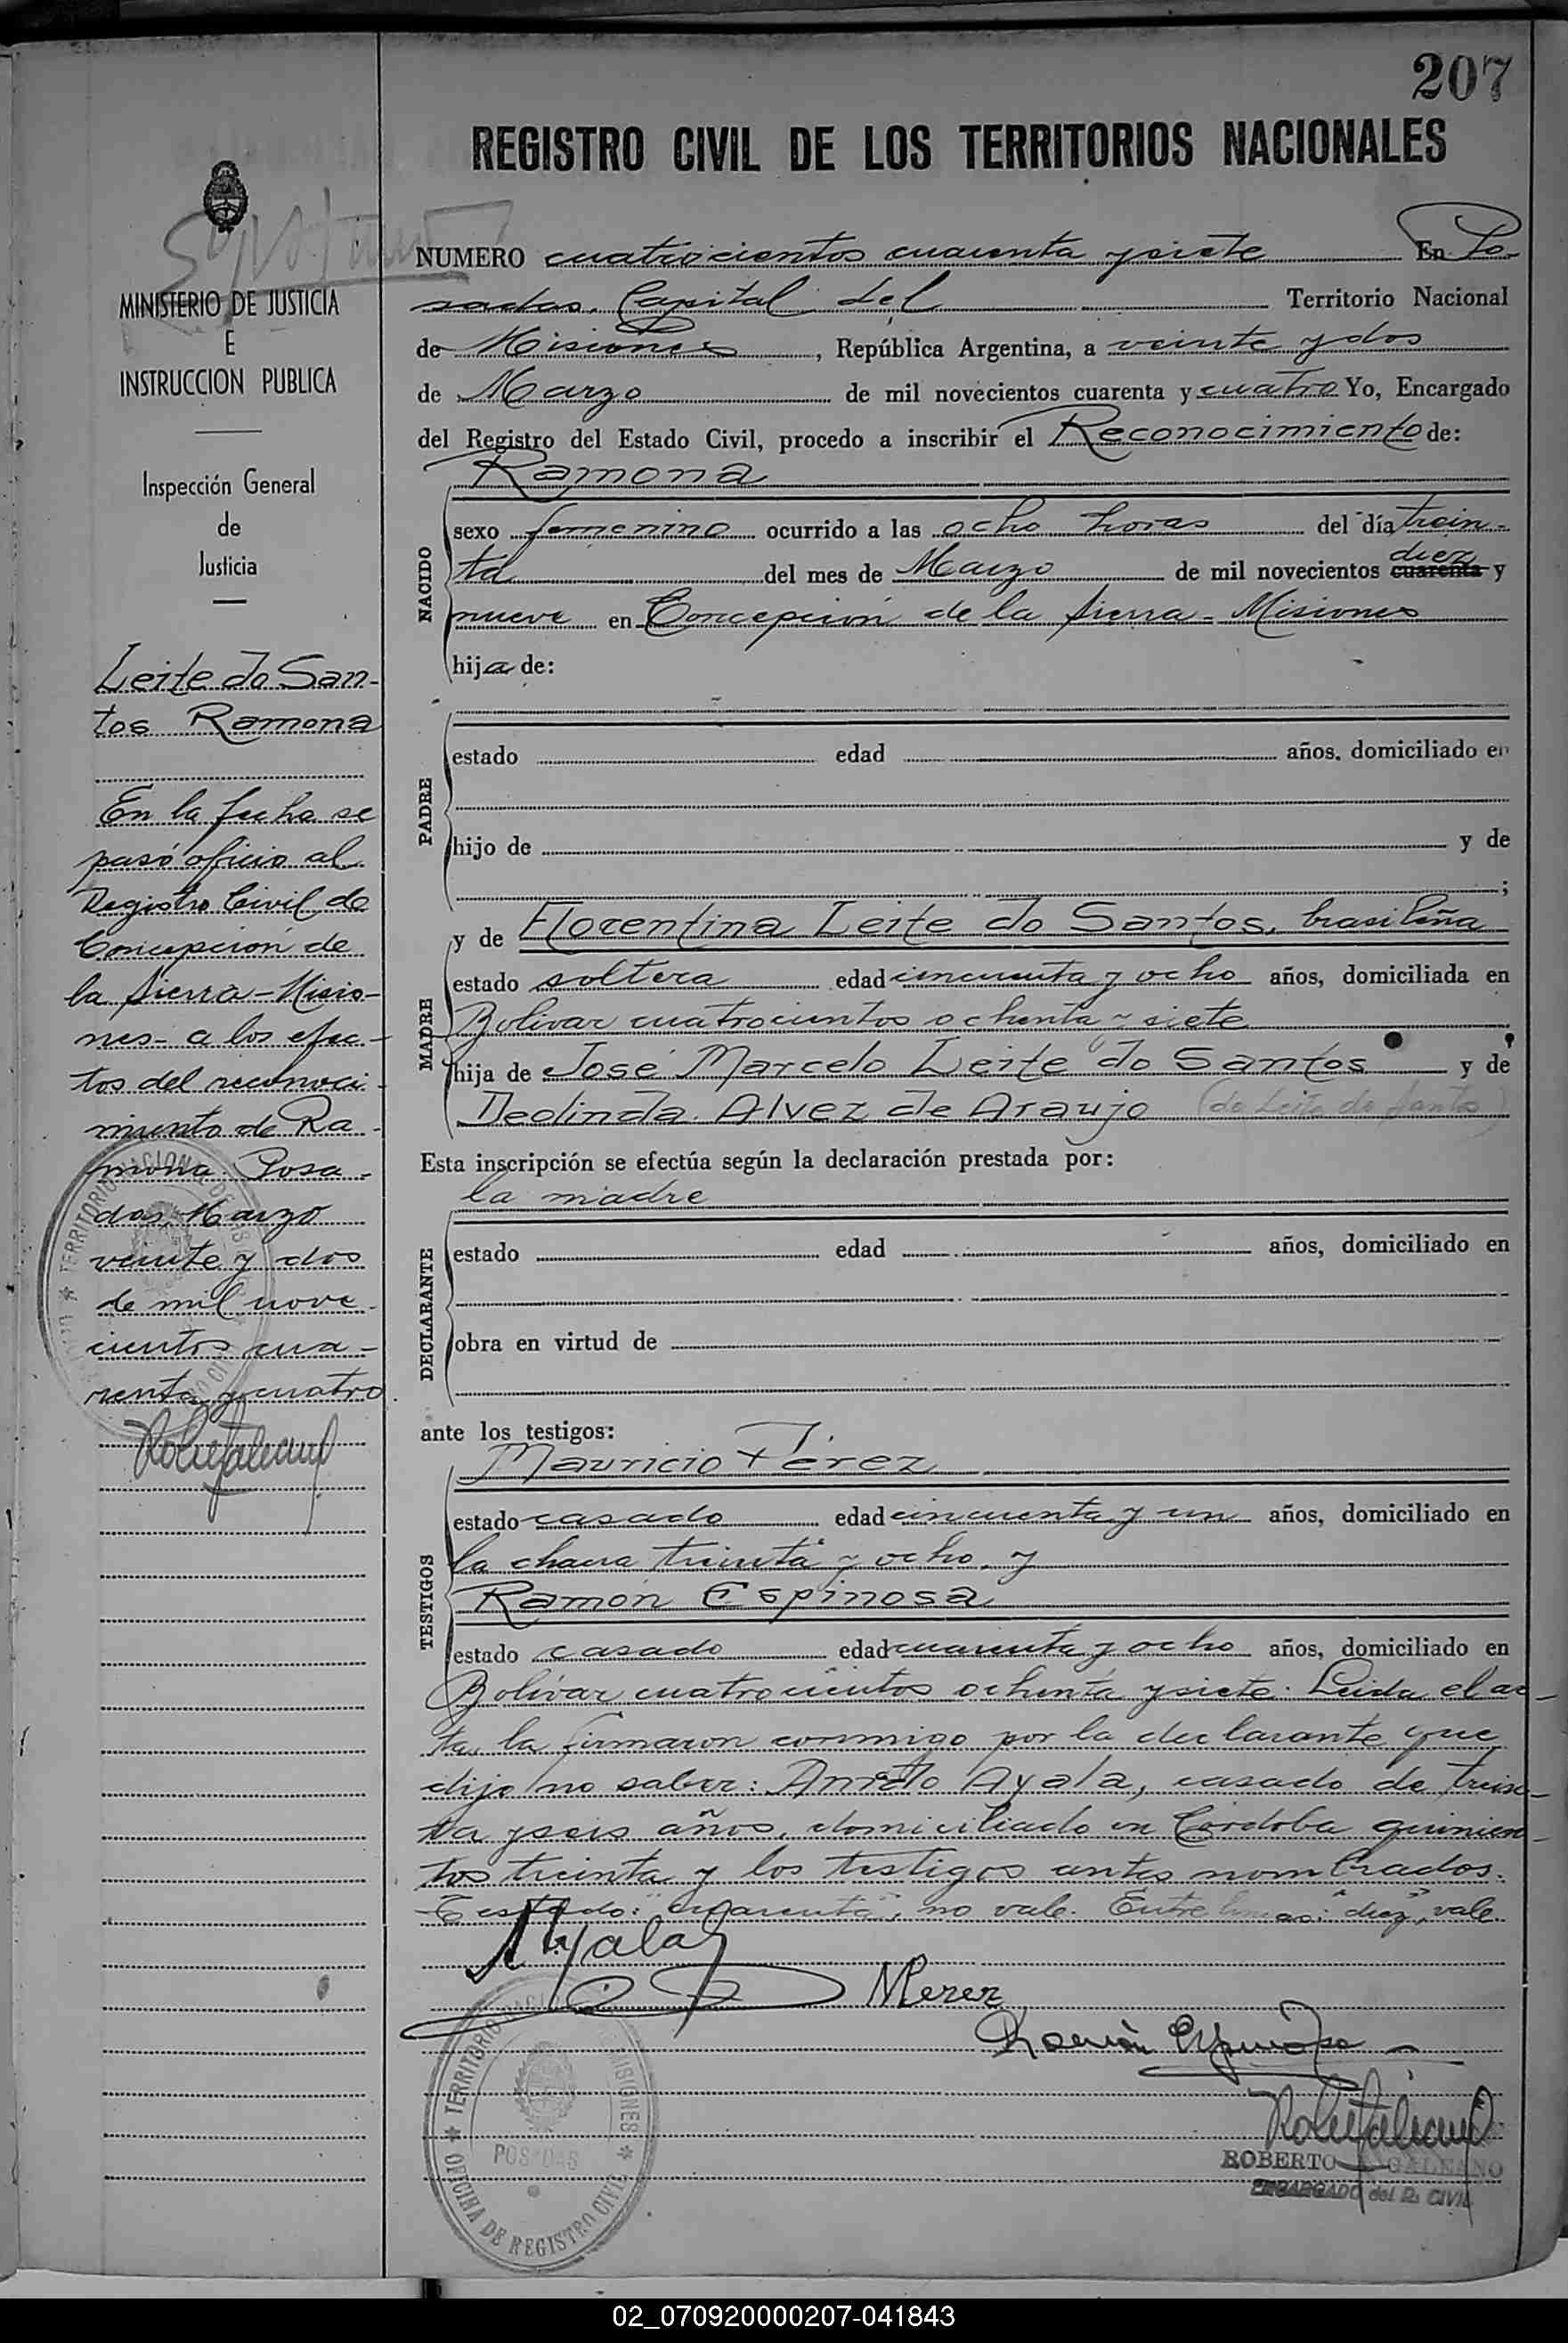 207
REGISTRO CIVIL DE LOS TERRITORIOS NACIONALES
MINISTERIO DE JUSTICIA
E
INSTRUCCION PUBLICA
Inspección General
de
Justicia
Leite do San-
tos Ramona
En la fecha se
pasó oficio al
Registro Civil de
Concepción de
la Sierra - Misio-
nes - a los efec-
tos del reconoci-
miento de Ra-
mona. Posa-
das, Marzo
veinte y dos
de mil nove-
cientos cua-
renta y cuatro.
NUMERO cuatrocientos cuarenta y siete En Po-
sadas, Capital del Territorio Nacional
de Misiones, República Argentina, a veinte y dos
de Marzo de mil novecientos cuarenta y cuatro Yo, Encargado
del Registro del Estado Civil, procedo a inscribir el Reconocimiento de:
Ramona
NACIDO
sexo femenino ocurrido a las ocho horas del día trein-
ta del mes de Marzo de mil novecientos cuarenta diez y
nueve en Concepción de la Sierra - Misiones
hija de:
PADRE
estado edad años, domiciliado en
hijo de y de
;
MADRE
y de Florentina Leite do Santos, brasileña
estado soltera edad cincuenta y ocho años, domiciliada en
Bolívar cuatrocientos ochenta y siete
hija de José Marcelo Leite do Santos y de
Deolinda Alvez de Araujo (de Leite do Santos)
Esta inscripción se efectúa según la declaración prestada por:
la madre
DECLARANTE
estado edad años, domiciliado en
obra en virtud de
ante los testigos:
TESTIGOS
Mauricio Pérez
estado casado edad cincuenta y un años, domiciliado en
la chacra treinta y ocho, y
Ramón Espinosa
estado casado edad cuarenta y ocho años, domiciliado en
Bolívar cuatrocientos ochenta y siete. Leida el ac-
ta, la firmaron conmigo por la declarante que
dijo no saber: Aniceto Ayala, casado de trein-
ta y seis años, domiciliado en Córdoba quinien-
tos treinta y los testigos antes nombrados.
Testado: "cuarenta", no vale. Entre líneas: "diez", vale.
AAyala
MPerez
Ramón Espinosa
TERRITORIO NACIONAL DE MISIONES
POSADAS
OFICINA DE REGISTRO CIVIL
ROBERTO GALEANO
ENCARGADO del R. CIVIL
02_070920000207-041843